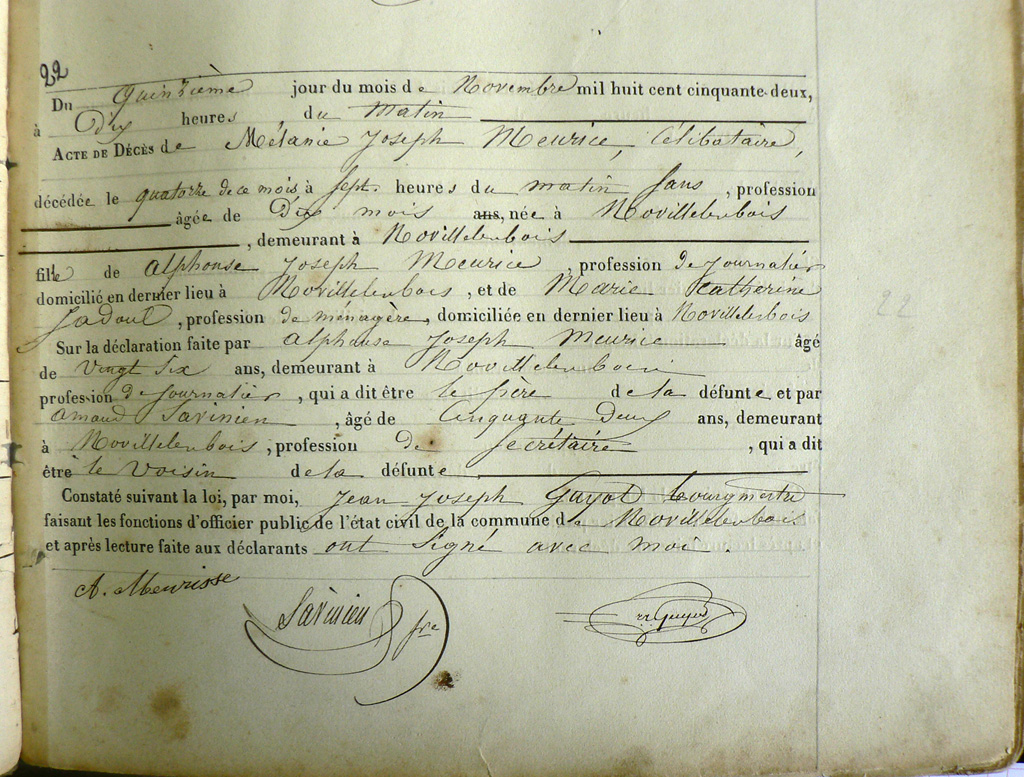 22
Du quinzième jour du mois de Novembre mil huit cent cinquante-deux,
à Dix heures du matin
ACTE DE DÉCÈS de Mélanie Joseph Meurice, célibataire,
décédée le quatorze de ce mois à sept heures du matin sans, profession
âgée de Dix mois ans, née à Novillelenbois
, demeurant à Novillelenbois
fille de Alphonse Joseph Meurice, profession de journalier
domicilié en dernier lieu à Novillelenbois, et de Marie Catherine
Jadoul, profession de ménagère, domiciliée en dernier lieu à Novillelenbois
Sur la déclaration faite par Alphonse Joseph Meurice âgé
de vingt six ans, demeurant à Novillelenbois
profession de journalier, qui a dit être le père de la défunte et par
Amand Savinien, âgé de Cinquante Deux ans, demeurant
à Novillelenbois, profession de secrétaire, qui a dit
être le voisin de la défunte
Constaté suivant la loi, par moi, Jean Joseph Guyot bourgmestre
faisant les fonctions d'officier public de l'état civil de la commune de Novillelenbois
et après lecture faite aux déclarants ont signé avec moi.
A. Meurisse
Savinien
22